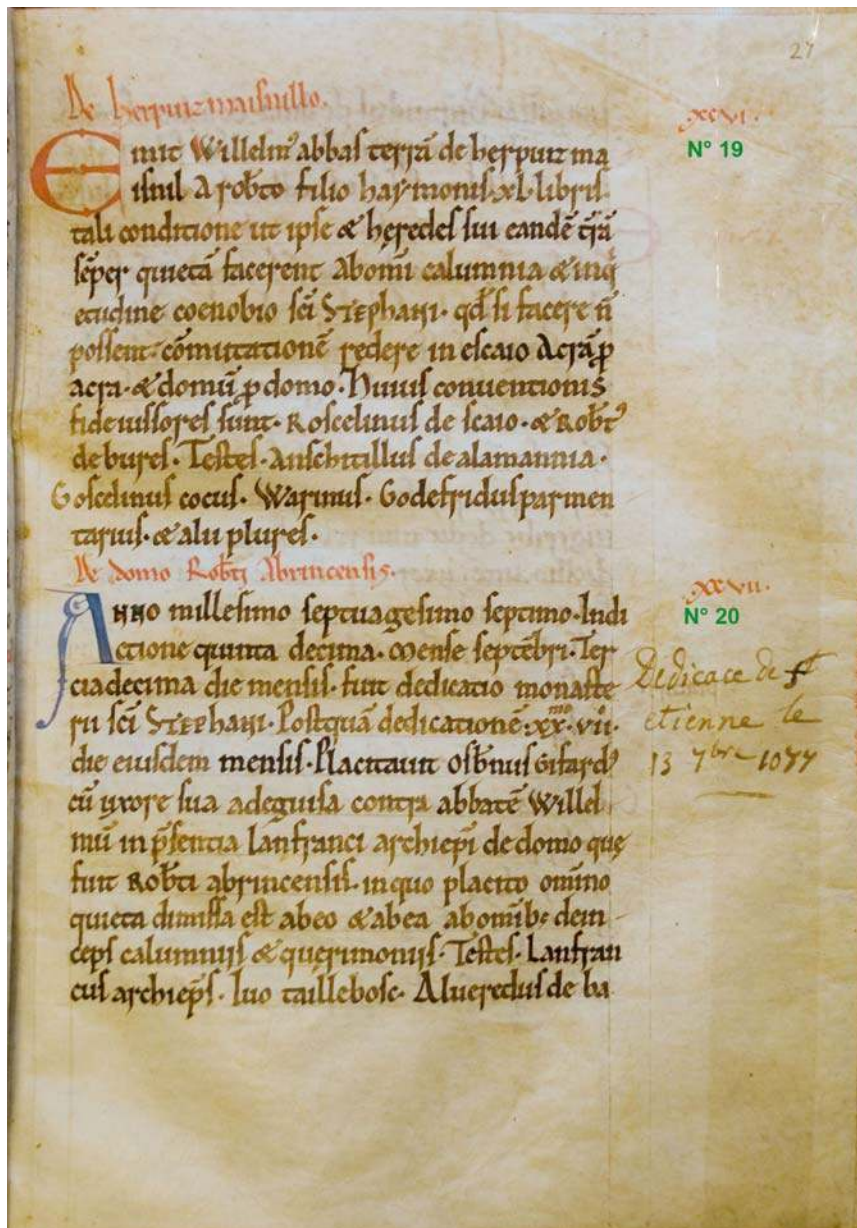 27
De herpuiz maisnillo.
xxvi.
N° 19
Emit Willelm' abbas terrā de herpuiz ma
isnil A rob̄to filio haymonis. xl. libris.
tali conditione ut ipse & hęredes sui eandē t̄rā
sēper quietā facerent Abomī calumnia & inq
etudine coenobio sc̄i STEPhANI. qd̄ si facere n̄
possent. cōmutationē redere in escaio Acrā ꝑ
acra. & domū ꝑ domo. Huius conventionis
fideiussores sunt. Roscelinus de scaio. & Rob̄t'
de bures. Testes. Anschitillus de alamannia.
Goscelinus cocus. Warinus. Godefridus parmen
tarius. & alii plures.
De domo Rob̄ti Abrincensis.
xxvii.
N° 20
ANNO millesimo septuagesimo septimo. Indi
ctione quinta decima. mense septēbri. Ter
cia decima die mensis. fuit dedicatio monaste
rii sc̄i STEPhANI. Postquā dedicationē. xx. vii. mo
die eiusdem mensis. Placitavit Osb̄nus Gifard'
cū uxore sua adeguisa contra abbatē Willel
mū in p̄sentia lanfranci archiep̄i de domo quę
fuit Rob̄ti abrincensis. in quo placito omīno
quieta dimissa est abeo & abea abomīb; dein
ceps calumniis & querimoniis. Testes. Lanfran
cus archiep̄s. Iuo taillebosc. Alueredus de ba
Dedicace de St
etienne le
13 7bre 1077